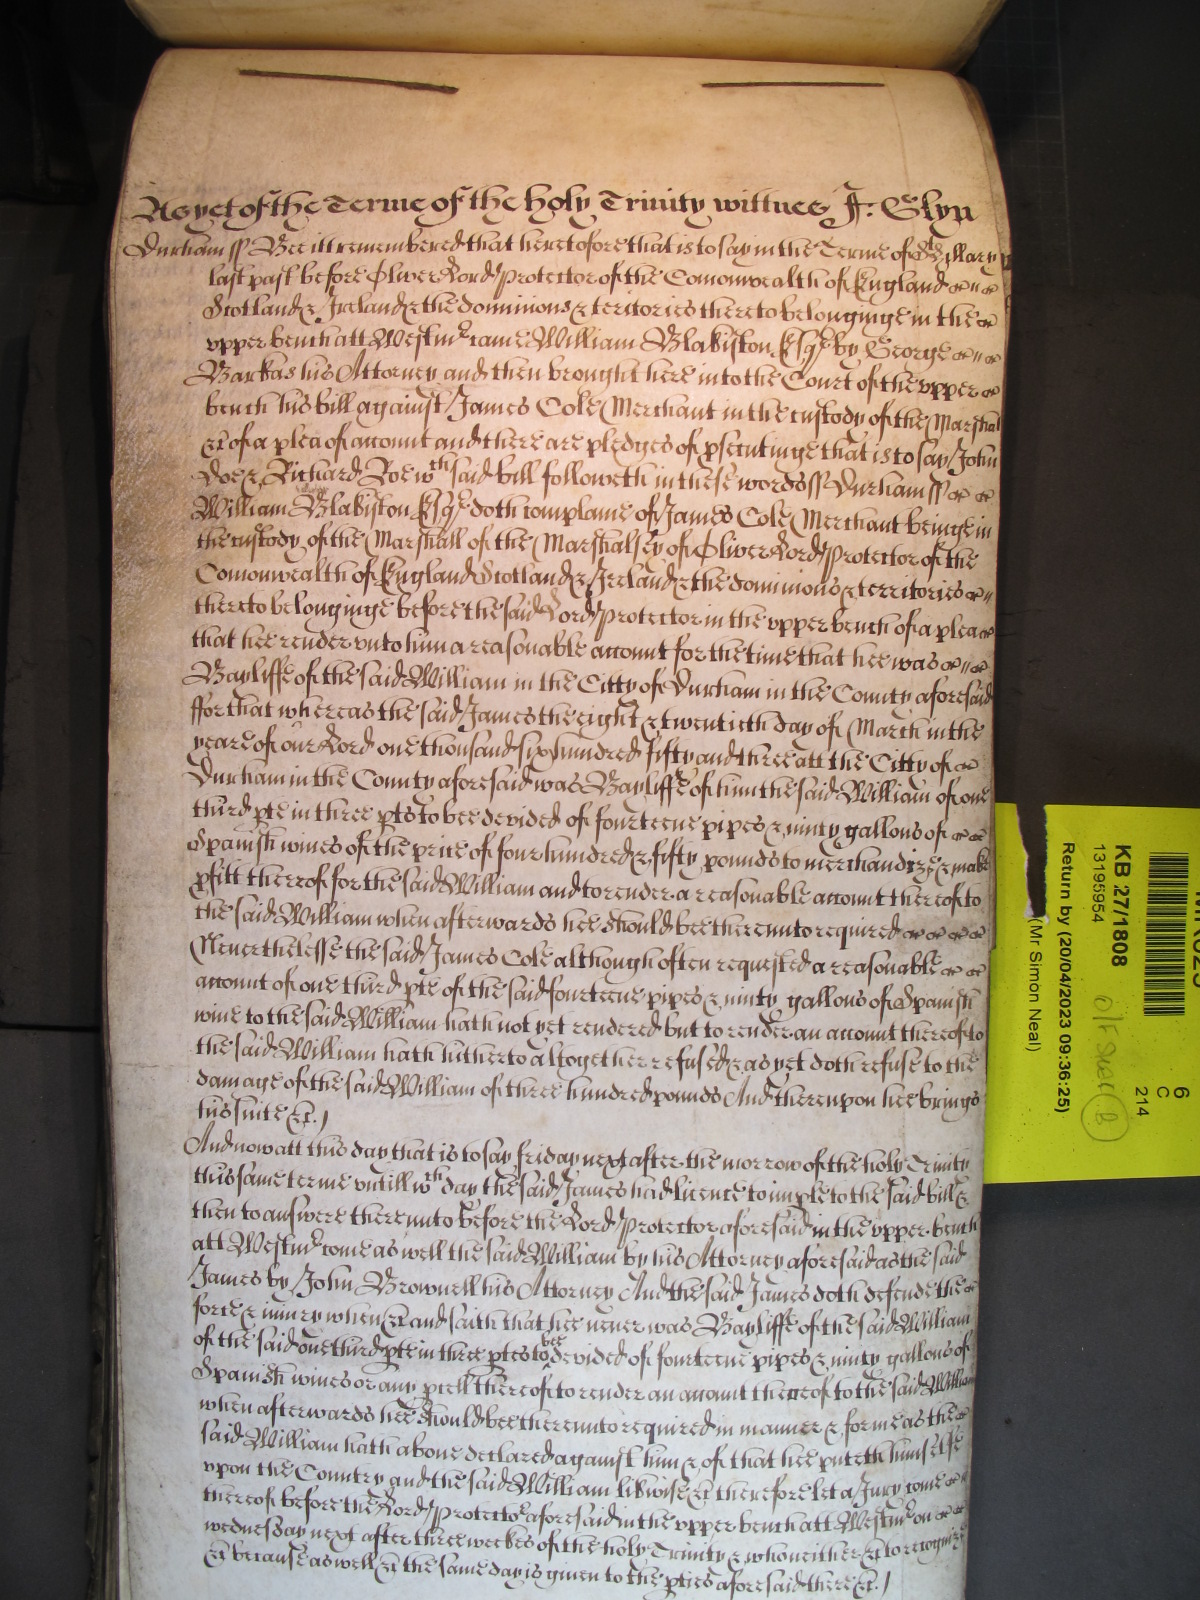 As yet of the Terme of the holy Trinity wittnes J: Glyn
Durham ss Bee itt remembered that heretofore that is to say in the Terme of St Mary
last past before Oliver Lord Protector of the Comonwealth of England
Scotland & Ireland & the dominions & territories thereto belonginge in the
upper bench att Westmr came William Blakiston Esqr by George
Barkas his Attorney and then brought here into the Court of the upper
bench his bill against James Cole Merchant in the custody of the Marshal
&c of a plea of account and there are pledges of psecutinge that is to say John
Doe & Richard Roe wch said bill followeth in these words ss Durham ss
William Blakiston Esqr doth complaine of James Cole Merchant beinge in
the custody of the Marshall of the Marshalsey of Oliver Lord Protector of the
Comonwealth of England Scotland & Ireland & the dominions & territories
thereto belonginge before the said Lord Protector in the upper bench of a plea
that hee render unto him a reasonable account for the time that hee was
Bayliffe of the said William in the Citty of Durham in the County aforesaid
ffor that whereas the said James the eight & twentieth day of March in the
yeare of our Lord one thousand six hundred fifty and three att the Citty of
Durham in the County aforesaid was Bayliffe of him the said William of one
third pte in three pts to bee devided of fourteene pipes & ninty gallons of
Spanish wines of the price of four hundred & fifty pounds to merchandize & make
pfitt thereof for the said William and to render a reasonable account thereof to
the said William when afterwards hee should bee thereunto required
Neverthelesse the said James Cole although often requested a reasonable
account of one third pte of the said fourteene pipes & ninty gallons of Spanish
wine to the said William hath not yet rendered but to render an account thereof to
the said William hath hitherto altogether refused & as yet doth refuse to the
damage of the said William of three hundred pounds And thereupon hee brings
his suite &c.
And now att this day that is to say friday next after the morrow of the holy Trinity
this same terme untill wch day the said James had licence to imple to the said bill &
then to answere thereunto before the Lord Protector aforesaid in the upper bench
att Westmr come as well the said William by his Attorney aforesaid as the said
James by John Brownell his Attorney And the said James doth defende the
force & iniury when &c and saith that hee never was Bayliffe of the said William
of the said one third pte in three ptes to bee devided of fourteene pipes & ninty gallons of
Spanish wines or any pcell thereof to render an account thereof to the said William
when afterwards hee should bee thereunto required in manner & forme as the
said William hath above declared against him & of that hee putteth himselfe
upon the Country and the said William likwise &c therefore let a Jury come
thereof before the Lord Protector aforesaid in the upper bench att Westmr on
wednesday next after three weekes of the holy Trinity & who neither &c to recognize
&c because as well &c the same day is given to the pties aforesaid there &c.
KB 27/1808
13195954
(Mr Simon Neal)
Return by (20/04/2023 09:36:25)
6
C
214